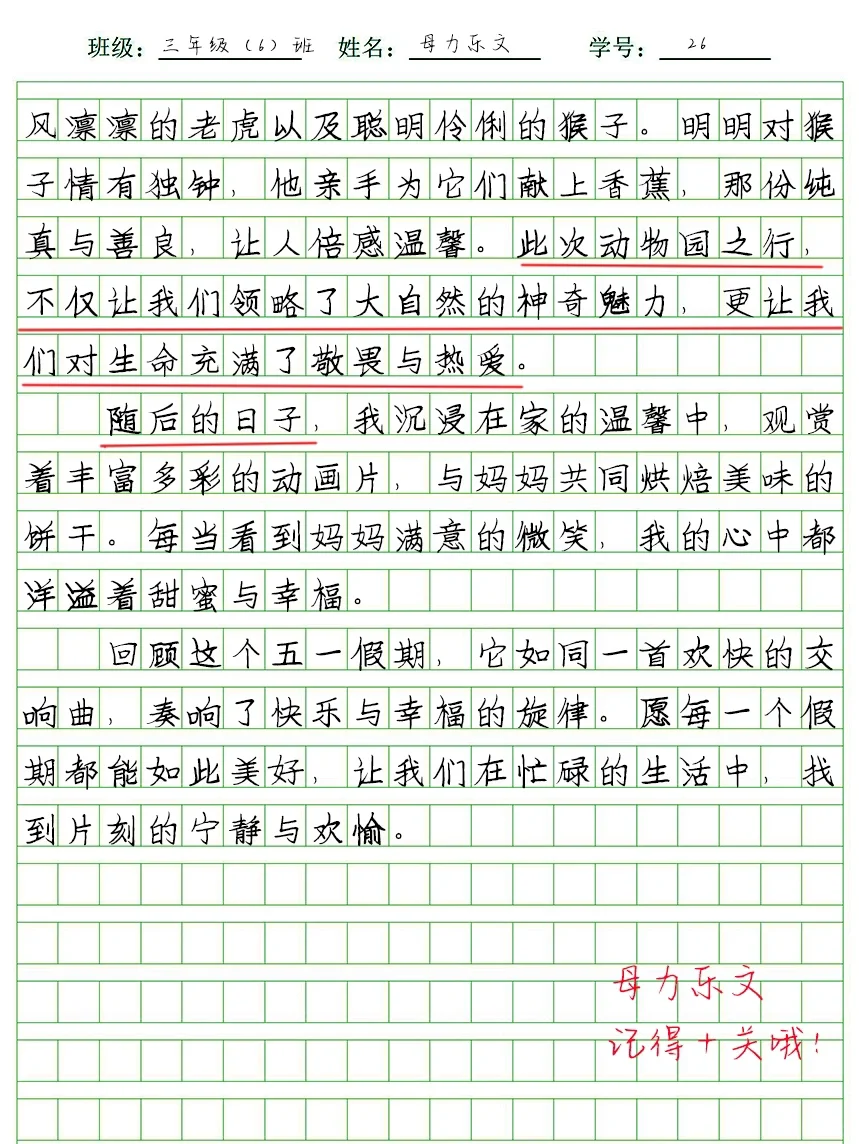 班级：三年级（6）班 姓名：母力乐文 学号：26
风凛凛的老虎以及聪明伶俐的猴子。明明对猴
子情有独钟，他亲手为它们献上香蕉，那份纯
真与善良，让人倍感温馨。此次动物园之行，
不仅让我们领略了大自然的神奇魅力，更让我
们对生命充满了敬畏与热爱。
随后的日子，我沉浸在家的温馨中，观赏
着丰富多彩的动画片，与妈妈共同烘焙美味的
饼干。每当看到妈妈满意的微笑，我的心中都
洋溢着甜蜜与幸福。
回顾这个五一假期，它如同一首欢快的交
响曲，奏响了快乐与幸福的旋律。愿每一个假
期都能如此美好，让我们在忙碌的生活中，找
到片刻的宁静与欢愉。
母力乐文
记得+关哦！